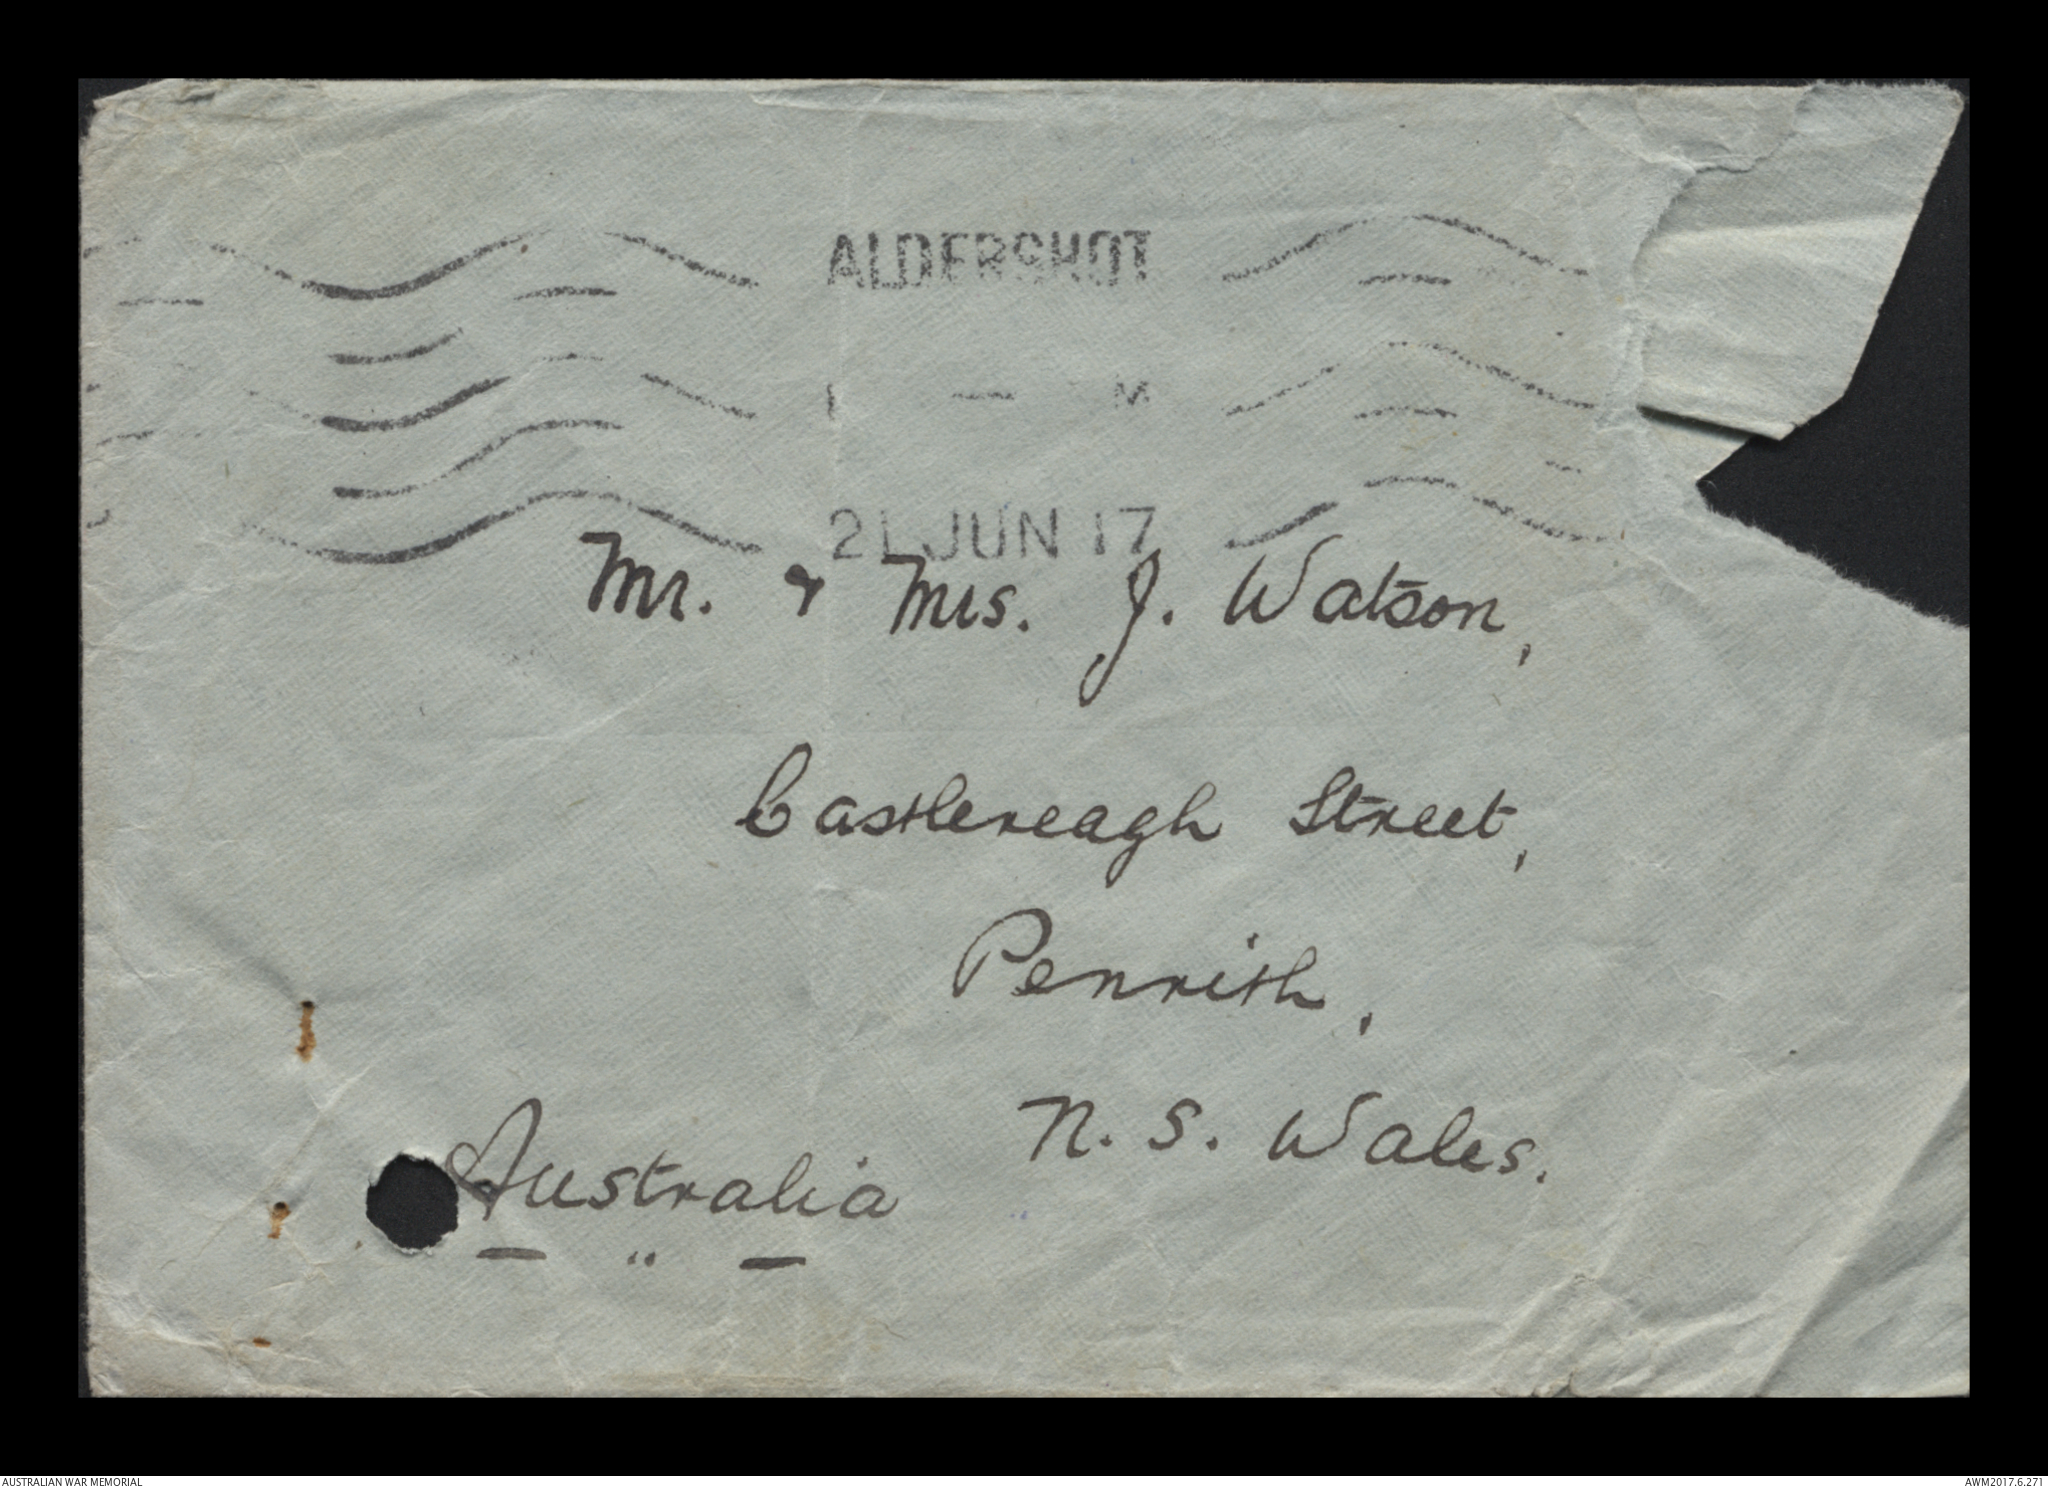 ALDERSHOT
21 JUN 17
Mr. & Mrs. J. Watson,
Castlereagh Street,
Penrith,
N. S. Wales.
Australia
AUSTRALIAN WAR MEMORIAL
AWM2017.6.271